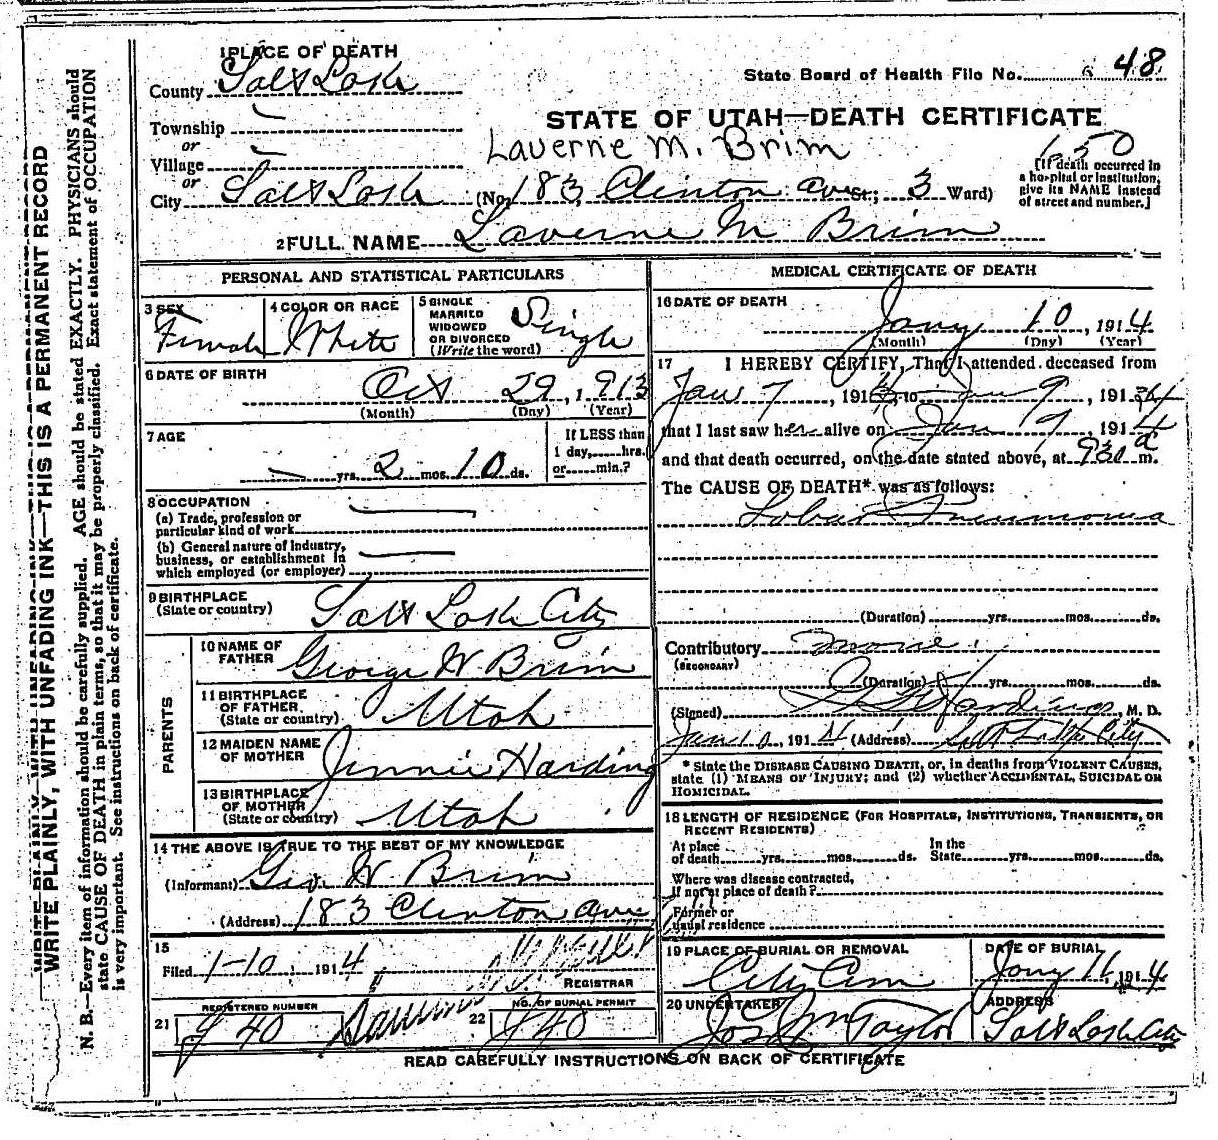 1 PLACE OF DEATH
County Salt Lake
State Board of Health File No. 48
Township
or
STATE OF UTAH—DEATH CERTIFICATE
Laverne M. Brim
Village
or
150
[If death occurred in
a hospital or institution,
give its NAME instead
of street and number.]
City Salt Lake (No. 183 Clinton ave St.; 3 Ward)
2 FULL NAME Laverne M Brim
PERSONAL AND STATISTICAL PARTICULARS
3 SEX
Female
4 COLOR OR RACE
White
5 SINGLE
MARRIED
WIDOWED
OR DIVORCED
(Write the word)
Single
6 DATE OF BIRTH
Oct 29, 1913
(Month) (Day) (Year)
7 AGE
yrs. 2 mos. 10 ds.
If LESS than
1 day, hrs.
or min.?
8 OCCUPATION
(a) Trade, profession or
particular kind of work
(b) General nature of Industry,
business, or establishment in
which employed (or employer)
9 BIRTHPLACE
(State or country) Salt Lake City
PARENTS
10 NAME OF
FATHER George W Brim
11 BIRTHPLACE
OF FATHER
(State or country) Utah
12 MAIDEN NAME
OF MOTHER Jennie Harding
13 BIRTHPLACE
OF MOTHER
(State or country) Utah
14 THE ABOVE IS TRUE TO THE BEST OF MY KNOWLEDGE
(Informant) Geo. W. Brim
(Address) 183 Clinton ave
15
Filed 1-10, 1914
REGISTRAR
REGISTERED NUMBER
21 J 40
NO. OF BURIAL PERMIT
22 J 40
MEDICAL CERTIFICATE OF DEATH
16 DATE OF DEATH
Jany 10, 1914
(Month) (Day) (Year)
17 I HEREBY CERTIFY, That I attended deceased from
Jan 7, 1914, to Jan 9, 1914
that I last saw her alive on Jan 9, 1914
and that death occurred, on the date stated above, at 930 a m.
The CAUSE OF DEATH* was as follows:
Lobar Pneumonia
(Duration) yrs. mos. ds.
Contributory none
(SECONDARY)
(Duration) yrs. mos. ds.
(Signed) M. D.
Jan 10, 1914 (Address) Salt Lake City
* State the DISEASE CAUSING DEATH, or, in deaths from VIOLENT CAUSES,
state (1) MEANS OF INJURY; and (2) whether ACCIDENTAL, SUICIDAL OR
HOMICIDAL.
18 LENGTH OF RESIDENCE (FOR HOSPITALS, INSTITUTIONS, TRANSIENTS, OR
RECENT RESIDENTS)
At place
of death yrs. mos. ds.
In the
State yrs. mos. ds.
Where was disease contracted,
If not at place of death?
Former or
usual residence
19 PLACE OF BURIAL OR REMOVAL
City Cem
DATE OF BURIAL
Jany 11, 1914
20 UNDERTAKER
Jos Wm Taylor
ADDRESS
Salt Lake City
READ CAREFULLY INSTRUCTIONS ON BACK OF CERTIFICATE
WRITE PLAINLY, WITH UNFADING INK—THIS IS A PERMANENT RECORD
N. B.—Every item of information should be carefully supplied. AGE should be stated EXACTLY. PHYSICIANS should
state CAUSE OF DEATH in plain terms, so that it may be properly classified. Exact statement of OCCUPATION
is very important. See instructions on back of certificate.